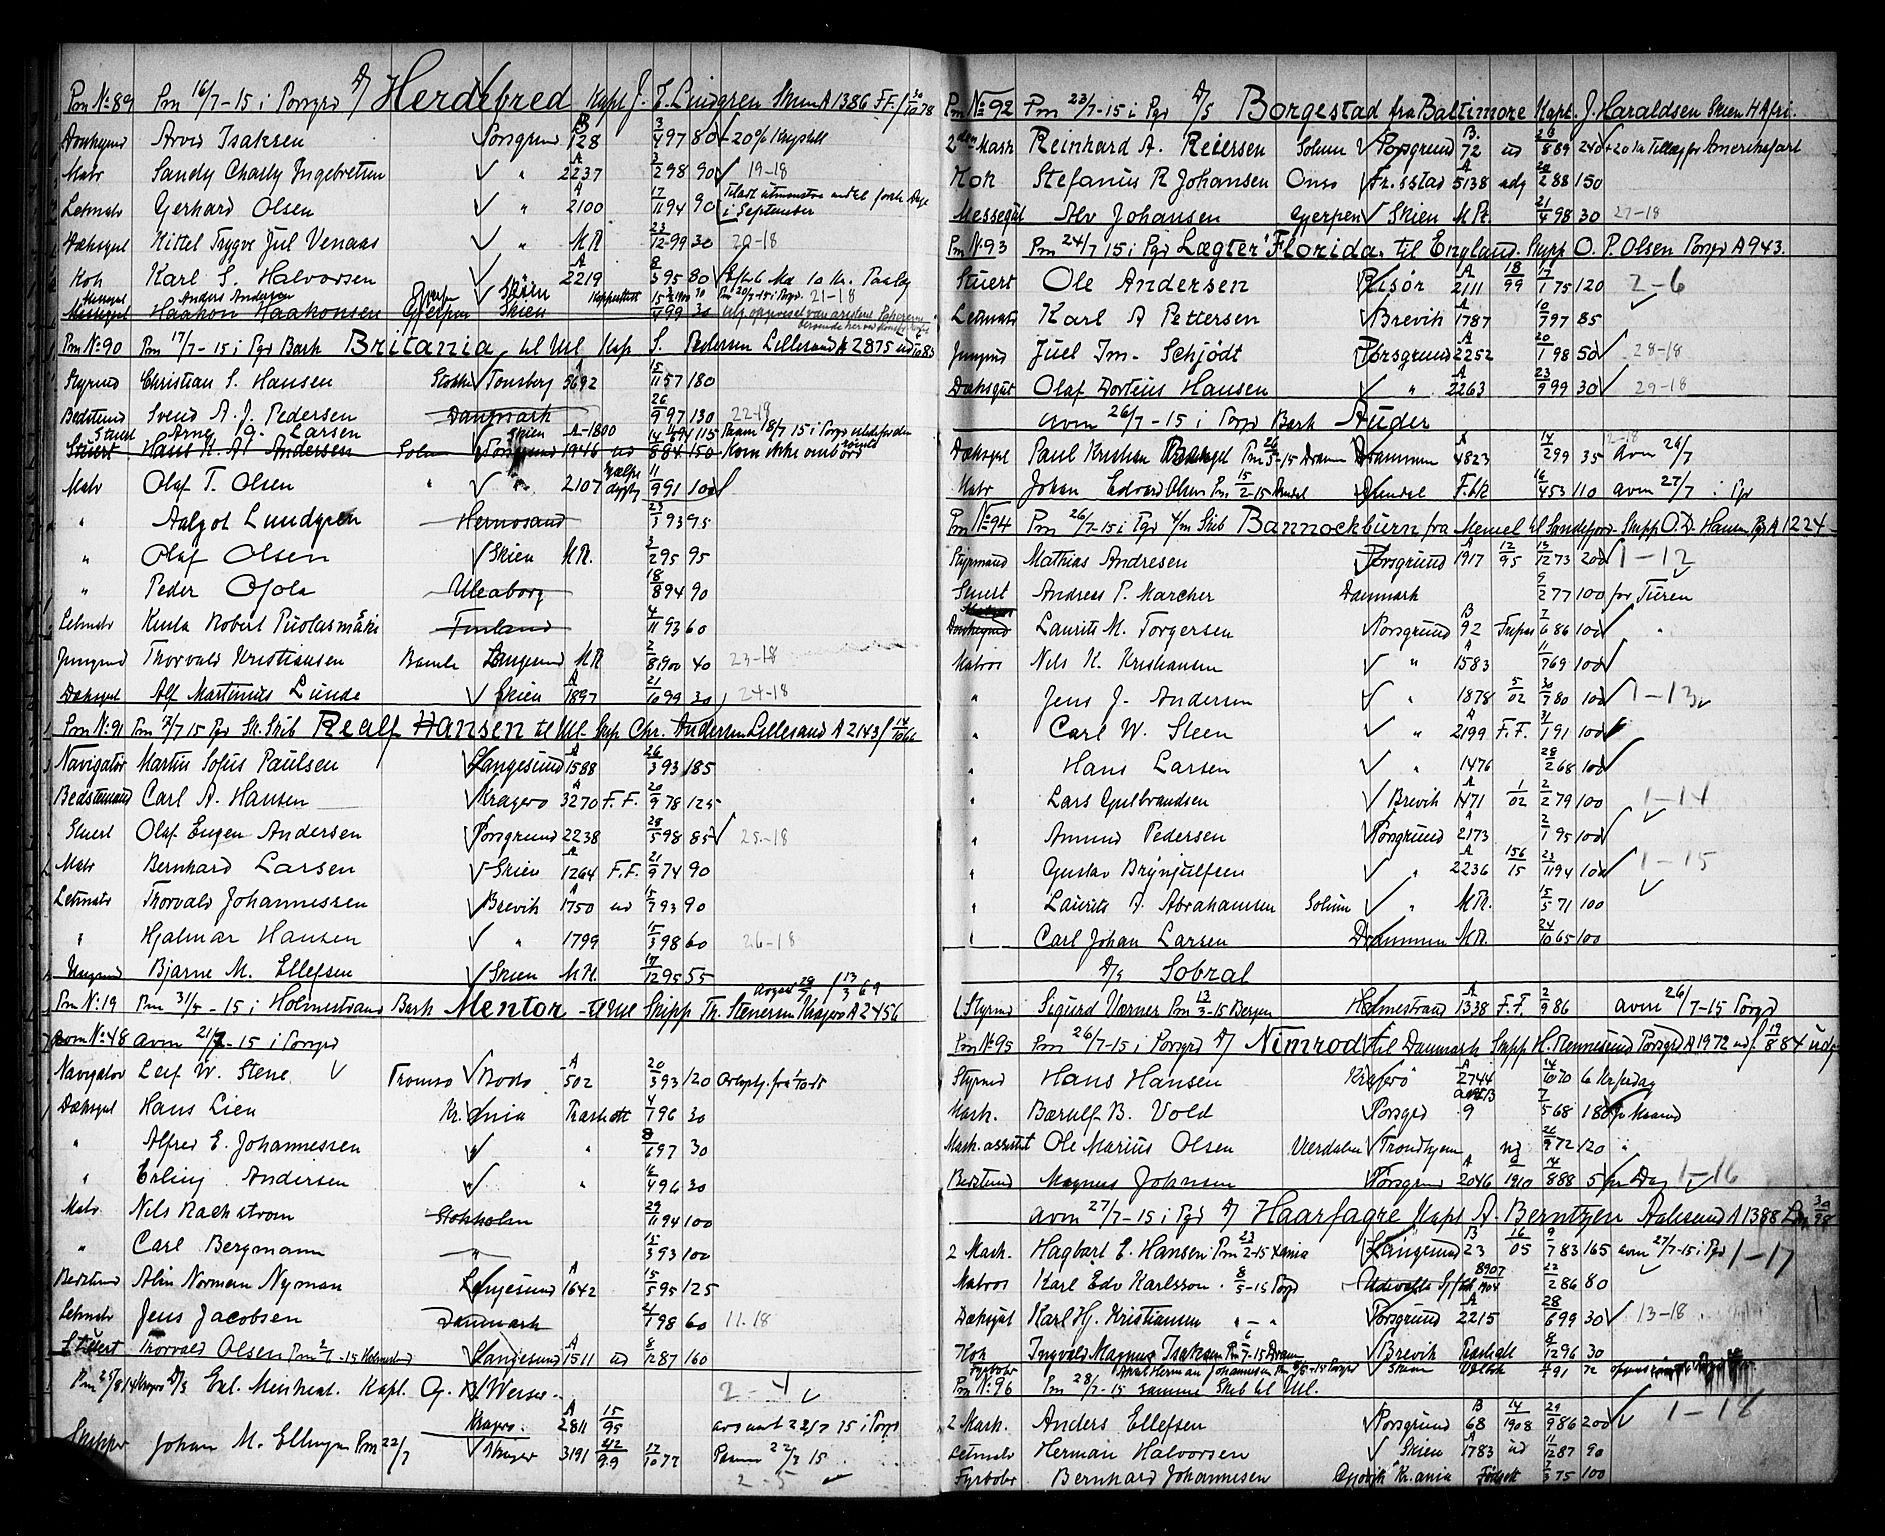 Pm № 89 Pm 16/7-15 i Porsgrd D/ Herdebred Kapt J. E. Lindgren Skien A 1386 F.F. 30/10 78
Arvid Isaksen Porsgrund B 728 3/4 97 80 + 20% Krigstill
Matr Sandy Charly Ingebretsen " A 2237 3/2 98 90 19-18
Letmatr Gerhard Olsen " A 2100 17/11 94 90 i September
Dæksgut Kittel Trygve Jul Venaas " M.R. 23/12 99 30 20-18
Kok Karl S. Halvorsen A 2219 8/5 95 80
Anders Andersen Skien 21-18
Messegut Haakon Haakonsen Gjerpen Skien 4 99 30
Pm № 90 Pm 17/7-15 i Pgr Bark Britania til Ul Kap S. Pedersen Lillesand A 2875
Styrmd Christian S. Hansen Stokke Tønsberg 5692 15/11 57 180
Bedstmd Svend A. J. Pedersen Danmark 26/9 97 130 22-18
Stuert Arne G. Larsen Skien A-1800 115 Paam 18/7 15 i Porsgr
Stuert Hans K. A. Andersen Solum Porsgrund 1946 ud 14/5 84 150 Kom ikke ombord
Matr Olaf T. Olsen " " 2107 11/9 91 100
" Aalgot Lundgren Hernosand 23/3 93 95
" Olaf Olsen Skien M.R. 2/2 95 95
" Peder Ojola Uleaborg 18/8 94 90
Letmatr Kusta Robert Puolasmäki Finland 4/11 93 60
Jungmd Thorvald Kristiansen Bamle Langesund M.R. 2/8 1900 40 23-18
Dæksgut Alf Martinius Lunde Skien A 1897 21/10 99 30 24-18
Pm № 91 Pm 7/7 15 Pgr Sk. Skib Realf Hansen til Ul Skip Chr. Andersen Lillesand A 2143 14/10 66
Navigatør Martin Sofus Paulsen Langesund A 1588 26/3 93 185
Bedstemand Carl A. Hansen Kragerø A 3270 F.F. 20/9 78 125
Stuert Olaf Eugen Andersen Porsgrund 2238 28/5 98 85 25-18
Matr Bernhard Larsen Skien A 1264 F.F. 21/9 74 90
Letmatr Thorvald Johannessen Brevik A 1750 ud 15/7 93 90
" Hjalmar Hansen " 1799 15/3 98 60 26-18
Jungmd Bjarne M. Ellefsen Skien M.R. 17/12 95 55
Pm № 19 Pm 31/5-15 i Holmestrand Bark Mentor til Ul Skipp Th. Stenersen Kragerø A 2456 13/3 69
avm № 48 avm 21/7-15 i Porsgrd
Navigatør Leif W. Stene Tromsø Bodø A 502 20/3 93 120
Dæksgut Hans Lien Kr.ania 4/7 96 30
" Alfred E. Johannessen " " 8/6 97 30
" Erling Andersen " " 16/4 96 30
Matr Nils Backstrom Stokholm 29/11 94 100
" Carl Bergmann " 15/3 93 100
Bedstmd Alin Norman Nyman Langesund A 1642 5/5 95 125
Letmatr Jens Jacobsen Danmark 21/1 98 60 11-18
Stuert Thorvald Olsen Pm 2/6-15 Holmestrand Langesund A 1511 ud 8/12 87 160
Pm 25/8 14 Kragerø D/S Kapt. G. B. 2-4
Kragerø A 2811 15/95 avsunt 22/7 15 i Porsgr
Skipper Johan M. Ellingsen Pm 22/7 Kragerø 3191 99 17/10 77 Paam 22/7 15
2-5
Pm № 92 Pm 23/7-15 i Pgr D/S Borgestad fra Baltimore Kapt. J. Haraldsen Skien
2den Mask Reinhard A. Reiersen Solum Porsgrund B. 72 ud 26/8 89 240 + 20 Kr Tillæg for Amerikafart
Kok Stefanius R Johansen Onsø Fr.sstad A 5138 udg 20/2 88 150
Messegut Alv Johansen Gjerpen Skien M.R. 21/4 98 30 27-18
Pm № 93 Pm 24/7 15 i Pgr Lægter Florida til England Skipp O. P. Olsen Porsgr A 943.
Stuert Ole Andersen Risör A 2111 18/99 17/1 75 120 2-6
Letmatr Karl A Pettersen Brevik A 1787 10/7 97 85
Jungmd Juel Im. Schjödt Porsgrund A 2252 20/1 98 50 28-18
Dæksgut Olaf Dortius Hansen " A 2263 23/9 99 30 29-18
avm 26/7-15 i Porsgr Bark Auder
Dæksgut Paul Kristian Pm 26/5-15 Dramm Drammen A 4823 14/2 99 35 avm 26/7
Matr Johan Edvard Olsen Pm 15/2-15 Arendal Arendal 16/4 53 110 avm 27/7 i Pgr
Pm № 94 Pm 26/7-15 i Pgr 4/m Skib Bannockburn fra Memel til Sandefjord Skipp O. D. Hansen Pgr A 1224
Styrmand Mathias Andresen Porsgrund A 1917 12/95 13/12 73 200 1-12
Stuert Andreas P. Marcher Danmark 9/2 77 100 for Turen
Laurits M. Torgersen Porsgrund B 92 7/6 86 100 "
Matros Nils K. Kristiansen " A 1583 11/7 69 100
" Jens J. Andersen " 1878 5/02 30/9 80 100 1-13
" Carl W. Steen " A 2199 F.F. 31/1 91 100
" Hans Larsen " 1476 28/2 68 100
" Lars Gulbrandsen Brevik A 1471 1/02 2/2 79 100 1-14
" Amund Pedersen Porsgrund A 2173 2/1 95 100
" Gustav Brynjulfsen " A 2236 156/15 23/11 94 100 1-15
" Laurits A. Abrahamsen Solum " M.R. 15/5 71 100
" Carl Johan Larsen Drammen M.R. 24/10 65 100
D/S Sobral
1 Styrmd Sigurd Værner Pm 13/3-15 Bergen Holmestrand A 1338 F.F. 2/9 86 avm 26/7-15 Porsgr
Pm № 95 Pm 26/7-15 i Porsgr D/ Nimrod til Danmark Skipp H. Rennesund Porsgrd A 1972 ud 19/8 84 udg
Styrmd Hans Hansen Kragerö A 2744 14/10 70 6 Kr per dag
Mask. Barulf B. Vold Porsgrd 9 7/5 68 180 pr Maaned
Mask. assistent Ole Marius Olsen Værdalen Trondhjem 26/9 72 120 "
Bedstmd Magnus Johnsen Porsgrund A 2046 6/1910 14/8 88 5 pr Dag 1-16
avm 27/7-15 i Pgr D/ Haarfagre Kapt A. Berntzen Aalesund A 1388 30/98
2 Mask. Hagbart E. Hansen Pm 23/2-15 Xania Langesund B 23 16/05 9/7 83 165 avm 27/7-15 i Pgr 1-17
Matros Karl Edv Karlsson 8/5-15 Porsgr 8907 22/2 86 80
Dæksgut Karl Hj. Kristiansen " - " Porsgrund A 2215 28/6 99 30 13-18
Kok Ingvald Magnus Isaksen Pm 6/7-15 Dramm Brevik 8/12 96 30
Fyrbøter Axel Herman Johannesen Skien 91 72
Pm № 96 Pm 28/7-15 samme Skib til Ul.
2 Mask. Anders Ellefsen Porsgrund B 68 14/1908 29/9 86 200 1-18
Letmatr Herman Halvorsen Skien A 1783 ud 11/12 87 90
Fyrbøter Bernhard Johannesen Gjøvik Kr.ania 2/3 75 100